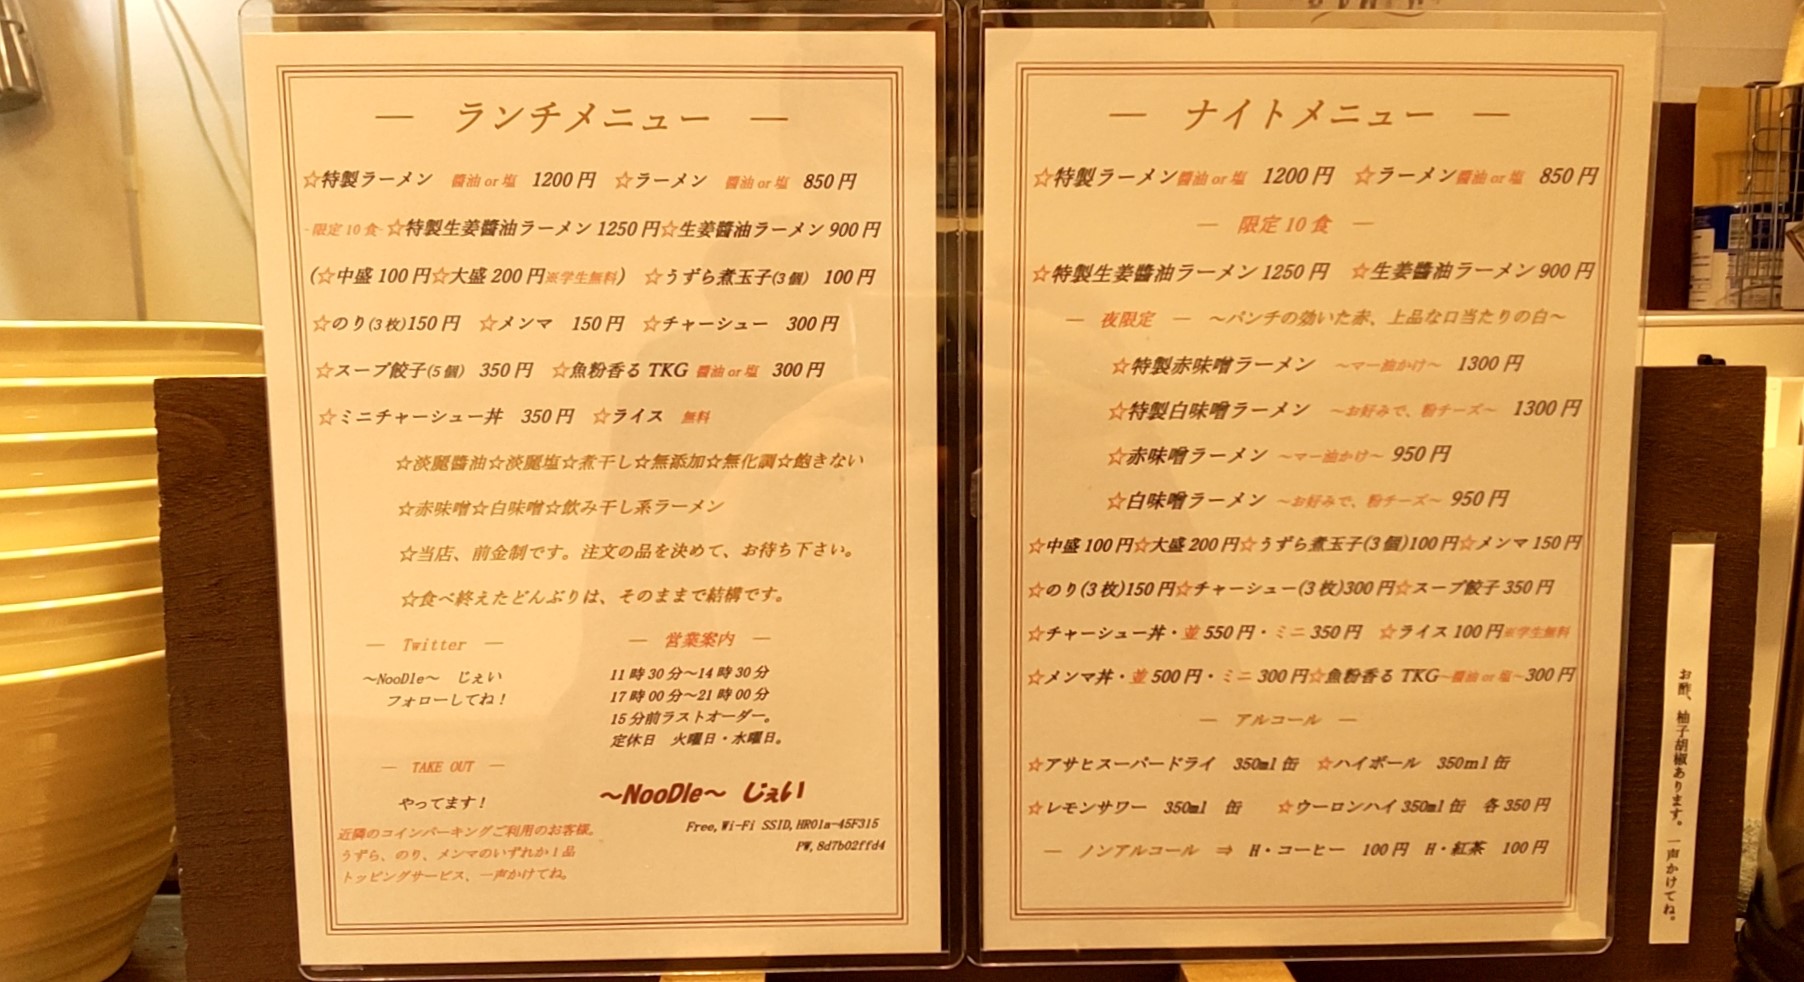 ― ランチメニュー ―
☆特製ラーメン 醤油 or 塩 1200 円 ☆ラーメン 醤油 or 塩 850 円
-限定 10 食-☆特製生姜醬油ラーメン 1250 円☆生姜醬油ラーメン 900 円
(☆中盛 100 円☆大盛 200 円※学生無料) ☆うずら煮玉子(3 個) 100 円
☆のり(3 枚)150 円 ☆メンマ 150 円 ☆チャーシュー 300 円
☆スープ餃子(5 個) 350 円 ☆魚粉香る TKG 醤油 or 塩 300 円
☆ミニチャーシュー丼 350 円 ☆ライス 無料
☆淡麗醬油☆淡麗塩☆煮干し☆無添加☆無化調☆飽きない
☆赤味噌☆白味噌☆飲み干し系ラーメン
☆当店、前金制です。注文の品を決めて、お待ち下さい。
☆食べ終えたどんぶりは、そのままで結構です。
― Twitter ―
～NooDle～ じぇい
フォローしてね！
― TAKE OUT ―
やってます！
近隣のコインパーキングご利用のお客様。
うずら、のり、メンマのいずれか 1 品
トッピングサービス、一声かけてね。
― 営業案内 ―
11 時 30 分～14 時 30 分
17 時 00 分～21 時 00 分
15 分前ラストオーダー。
定休日 火曜日・水曜日。
～NooDle～ じぇい
Free,Wi-Fi SSID,HR01a-45F315
PW,8d7b02ffd4
― ナイトメニュー ―
☆特製ラーメン醤油 or 塩 1200 円 ☆ラーメン醤油 or 塩 850 円
― 限定 10 食 ―
☆特製生姜醬油ラーメン 1250 円 ☆生姜醬油ラーメン 900 円
― 夜限定 ― ～パンチの効いた赤、上品な口当たりの白～
☆特製赤味噌ラーメン ～マー油かけ～ 1300 円
☆特製白味噌ラーメン ～お好みで、粉チーズ～ 1300 円
☆赤味噌ラーメン ～マー油かけ～ 950 円
☆白味噌ラーメン ～お好みで、粉チーズ～ 950 円
☆中盛 100 円☆大盛 200 円☆うずら煮玉子(3 個)100 円☆メンマ 150 円
☆のり(3 枚)150 円☆チャーシュー(3 枚)300 円☆スープ餃子 350 円
☆チャーシュー丼・並 550 円・ミニ 350 円 ☆ライス 100 円※学生無料
☆メンマ丼・並 500 円・ミニ 300 円☆魚粉香る TKG～醤油 or 塩～300 円
― アルコール ―
☆アサヒスーパードライ 350ml 缶 ☆ハイボール 350ml 缶
☆レモンサワー 350ml 缶 ☆ウーロンハイ 350ml 缶 各 350 円
― ノンアルコール ⇒ H・コーヒー 100 円 H・紅茶 100 円
お酢、柚子胡椒あります。一声かけてね。